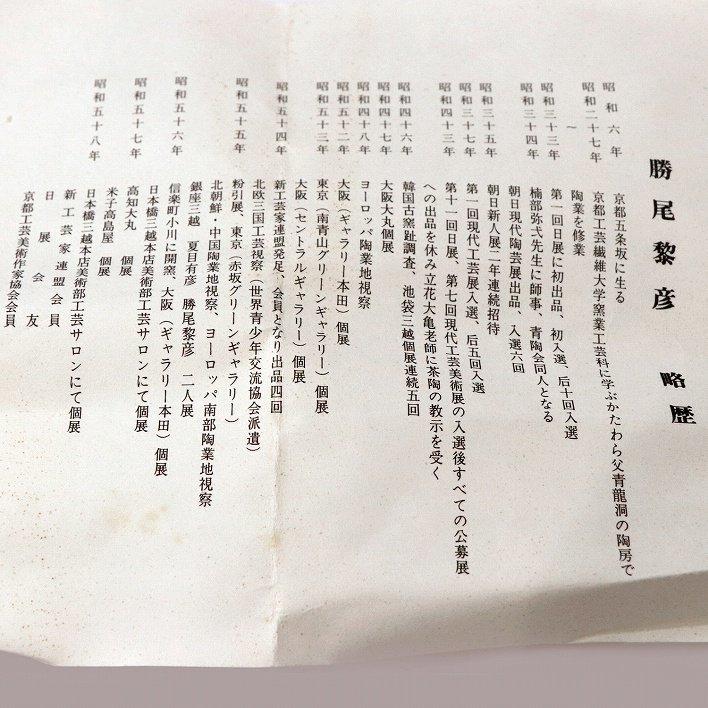 勝尾黎彦　略歴
昭和六年　京都五条坂に生る
昭和二十七年　京都工芸繊維大学窯業工芸科に学ぶかたわら父青龍洞の陶房で
〜　陶業を修業
昭和三十三年　第一回日展に初出品、初入選、后十回入選
楠部弥弌先生に師事、青陶会同人となる
昭和三十四年　朝日現代陶芸展出品、入選六回
朝日新人展二年連続招待
昭和三十五年　第一回現代工芸展入選、后五回入選
昭和三十七年　第十一回日展、第七回現代工芸美術展の入選後すべての公募展
昭和四十三年　への出品を休み立花大亀老師に茶陶の教示を受く
昭和四十六年　韓国古窯趾調査、池袋三越個展連続五回
昭和四十七年　大阪大丸個展
昭和四十八年　ヨーロッパ陶業地視察
昭和五十二年　大阪（ギャラリー本田）個展
昭和五十三年　東京（南青山グリーンギャラリー）個展
大阪（セントラルギャラリー）個展
昭和五十四年　新工芸家連盟発足、会員となり出品四回
北欧三国工芸視察（世界青少年交流協会派遣）
昭和五十五年　粉引展、東京（赤坂グリーンギャラリー）
北朝鮮・中国陶業地視察、ヨーロッパ南部陶業地視察
銀座三越　夏目有彦　勝尾黎彦　二人展
昭和五十六年　信楽町小川に開窯、大阪（ギャラリー本田）個展
日本橋三越本店美術部工芸サロンにて個展
昭和五十七年　高知大丸　個展
米子高島屋　個展
昭和五十八年　日本橋三越本店美術部工芸サロンにて個展
新工芸家連盟会員
日展会友
京都工芸美術作家協会会員